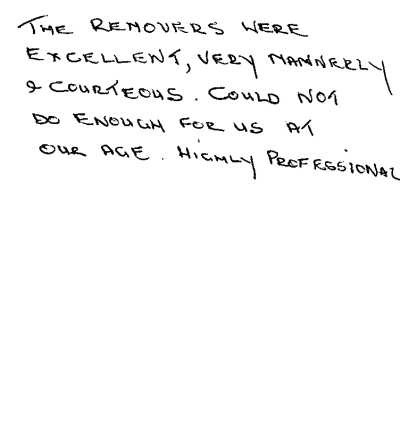 THE REMOVERS WERE
EXCELLENT, VERY MANNERLY
& COURTEOUS. COULD NOT
DO ENOUGH FOR US AT
OUR AGE. HIGHLY PROFESSIONAL